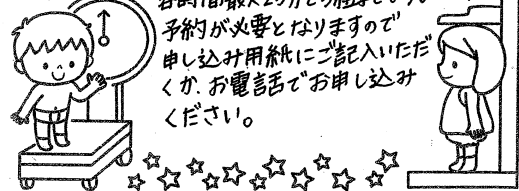 予約が必要となりますので
申し込み用紙にご記入いただ
くか、お電話でお申し込み
ください。